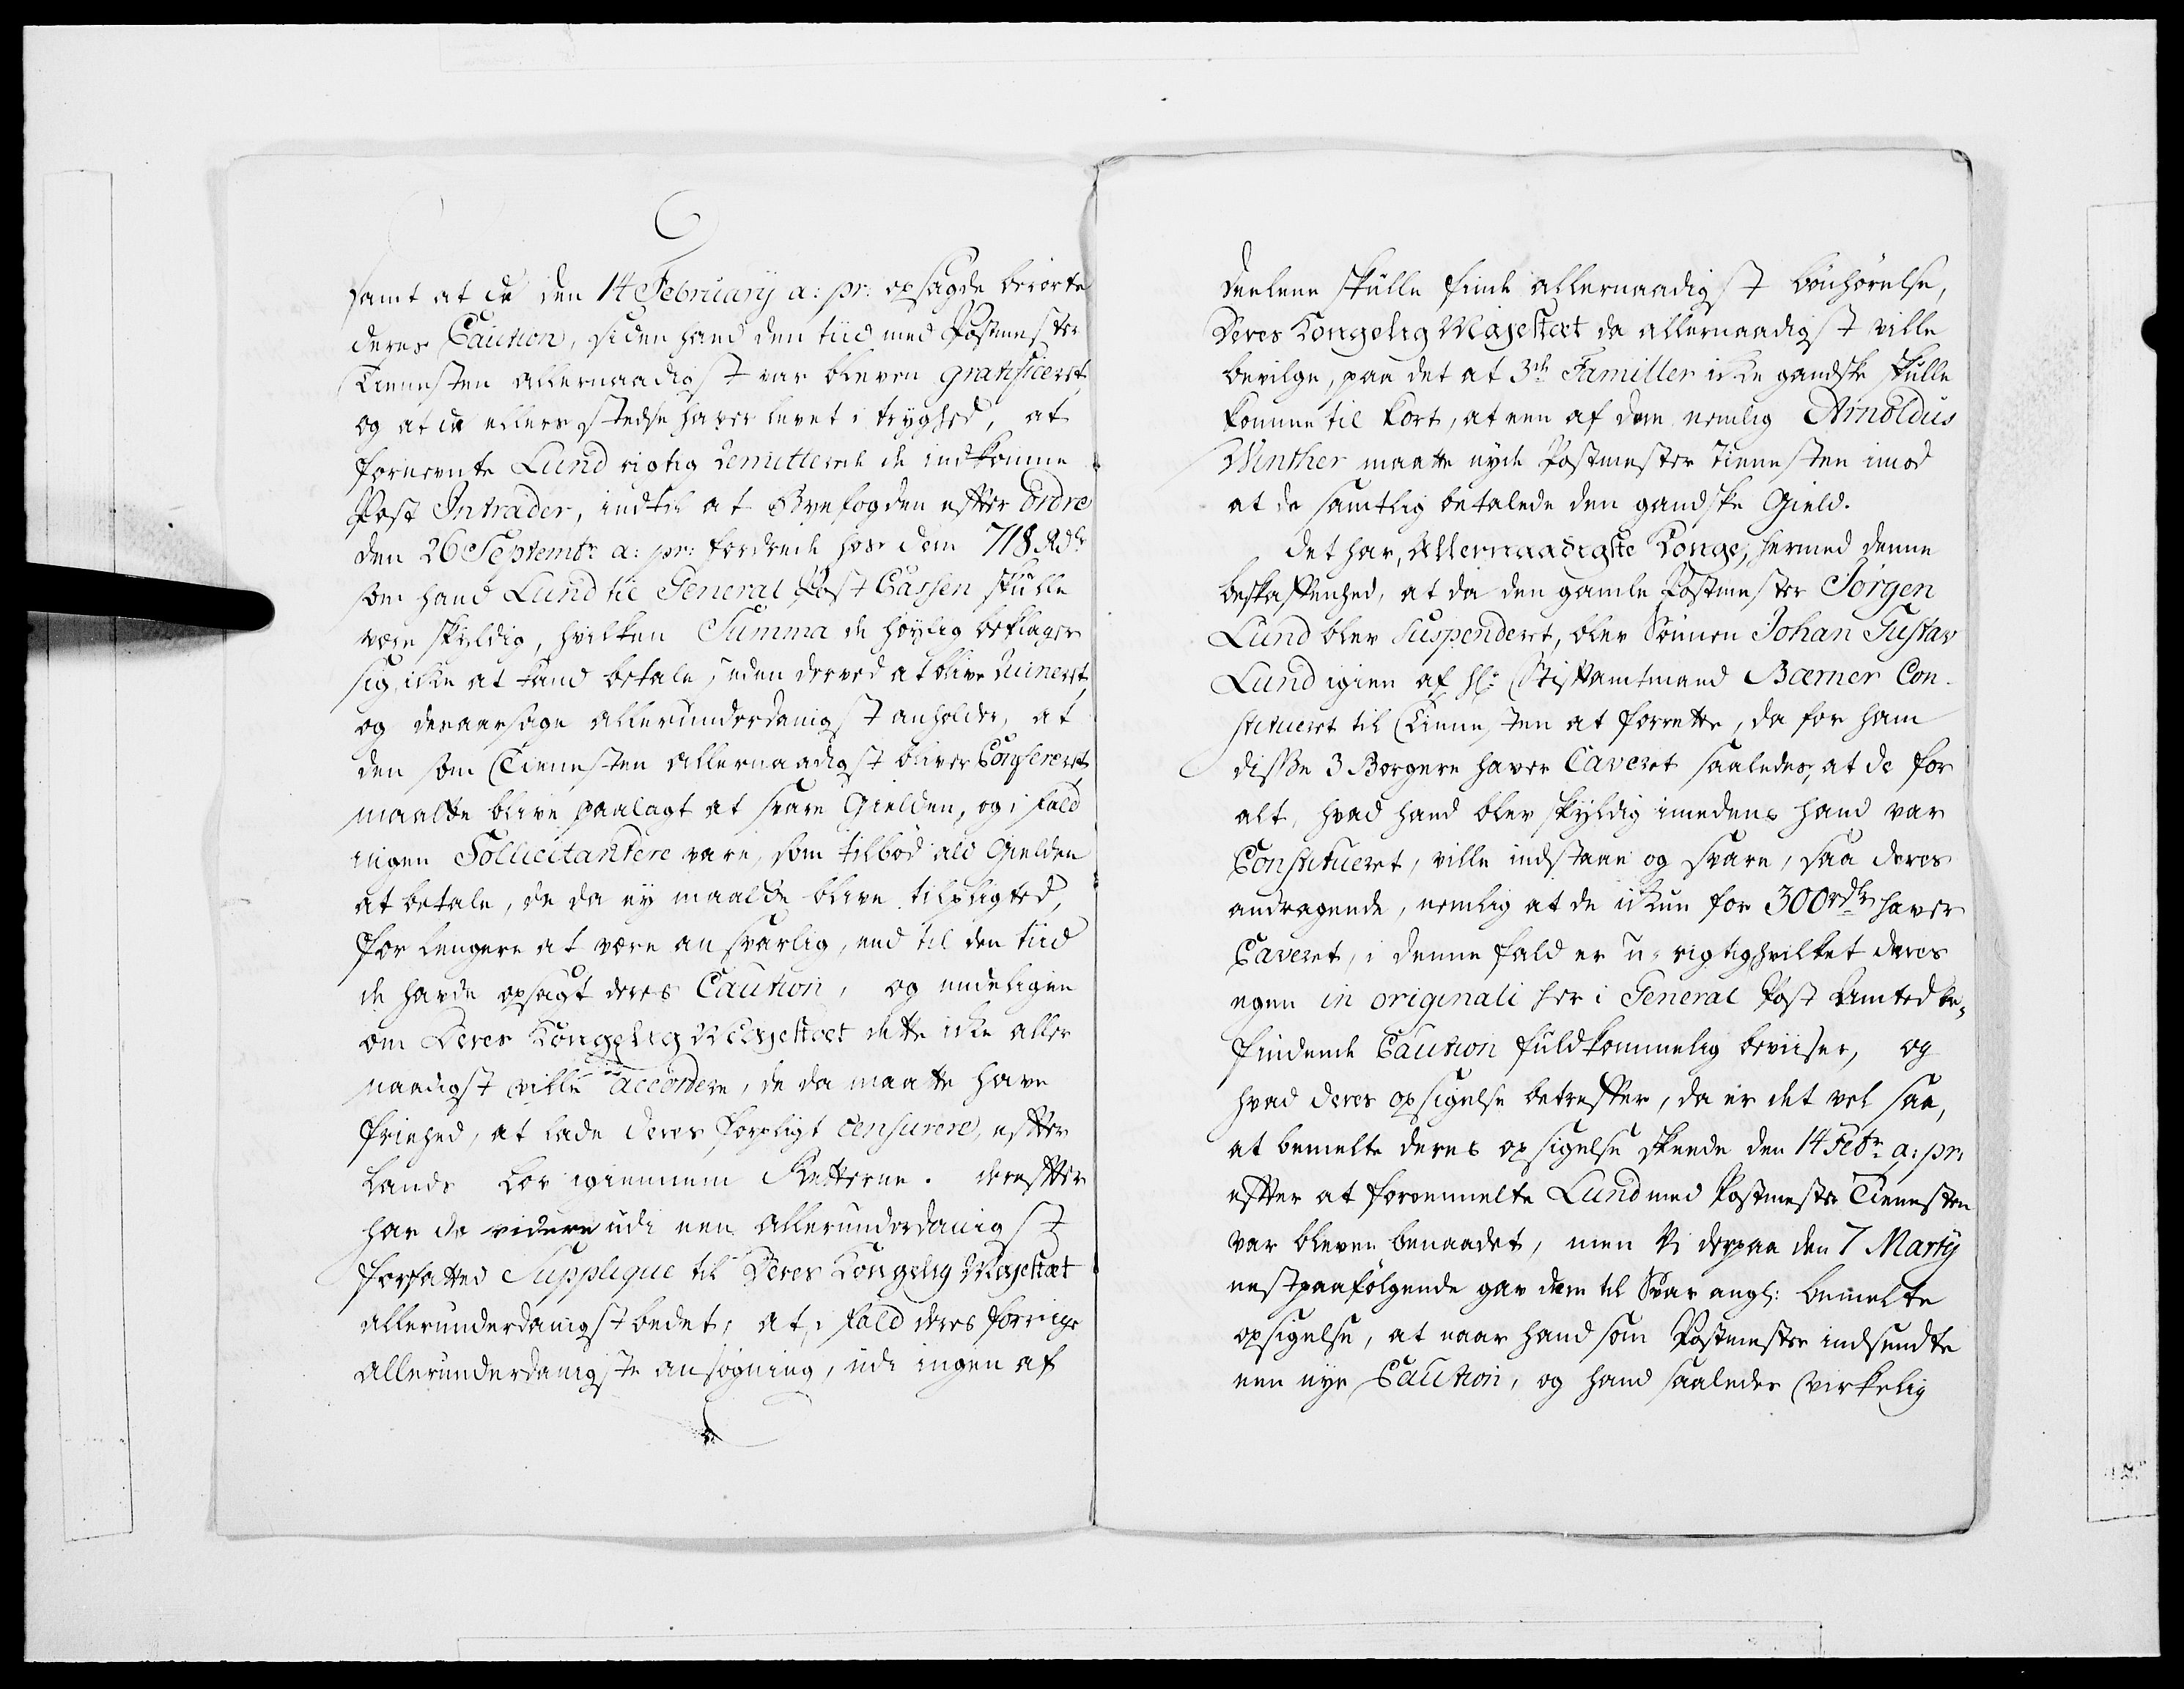 samt at de den 14 February a: pr: opsagde beiørte
deres Caution, siden hand den tiid med Postmester
Tienesten allernaadigst var bleven gratificeret,
og at de ellers stedse haver levet i tryghed, at
fornevnte Lund rigtig remitterede de indkomne
Post Intrader, indtil at Byefogden efter Ordre
den 26 Septembr a: pr: fordrede hos dem 718 Rdlr
som hand Lund til General Post Cassen skulle
være skyldig, hvilken Summa de høylig beklager
sig, icke at kand betale, uden derved at blive Ruineret,
og deraarsage allerunderdanigst anholder, at
den som Tienesten allernaadigst bliver Confereret,
maatte blive paalagt at svare Gielden, og i fald
ingen Sollicitantere vare, som tilbød ald Gielden
at betale, de da ey maatte blive tilpligted,
for lengere at være ansvarlig, end til den tiid
de havde opsagt deres Caution, og endeligen
om Deres Kongelig Mayestæt dette icke aller
naadigst ville accordere, de da maatte have
friehed, at lade deres forpligt censurere, efter
Lands Lov igiennem Retterne. derefter
har de videre udi een allerunderdanigst
forfatted Supplique til Deres Kongelig Mayestæt
allerunderdanigst bedet, at, i fald deres forrige
allerunderdanigste ansøgning, udi ingen af
deelene skulle finde allernaadigst bønhørelse,
Deres Kongelig Mayestæt da allernaadigst ville
bevilge, paa det at 3de Familler icke gandske skulle
komme til kort, at een af dem nemlig Arnoldus
Winther maatte nyde Postmester Tienesten imod
at de samtlig betalede den gandske Gield.
det har, Allernaadigste Konge, hermed denne
beskaffenhed, at da den gamle Postmester Jørgen
Lund blev Suspenderet, blev Sønnen Johan Gustav
Lund igien af Hr: Stiftamtmand Bærner Con-
stitueret til Tienesten at forrette, da for ham
disse 3 Borgere haver Caveret saaledes, at de for
alt, hvad hand blev skyldig imedens hand var
Constitueret, ville indstaae og svare, saa deres
andragende, nemlig at de ickun for 300 rdlr haver
Caveret, i denne fald er u-rigtig hvilket deres
egen in originali her i General Post Amted be-
findende Caution fuldkommelig beviiser, og
hvad deres opsigelse betreffer, da er det vel saa,
at bemelte deres opsigelse skeede den 14 Febr a: pr:
efter at foromelte Lund med Postmester Tienesten
var bleven benaadet, men Vi derpaa den 7 Marty
nestpaafølgende gav dem til Svar angl: bemelte
opsigelse, at naar hand som Postmester indsendte
een nye Caution, og hand saaledes virkelig